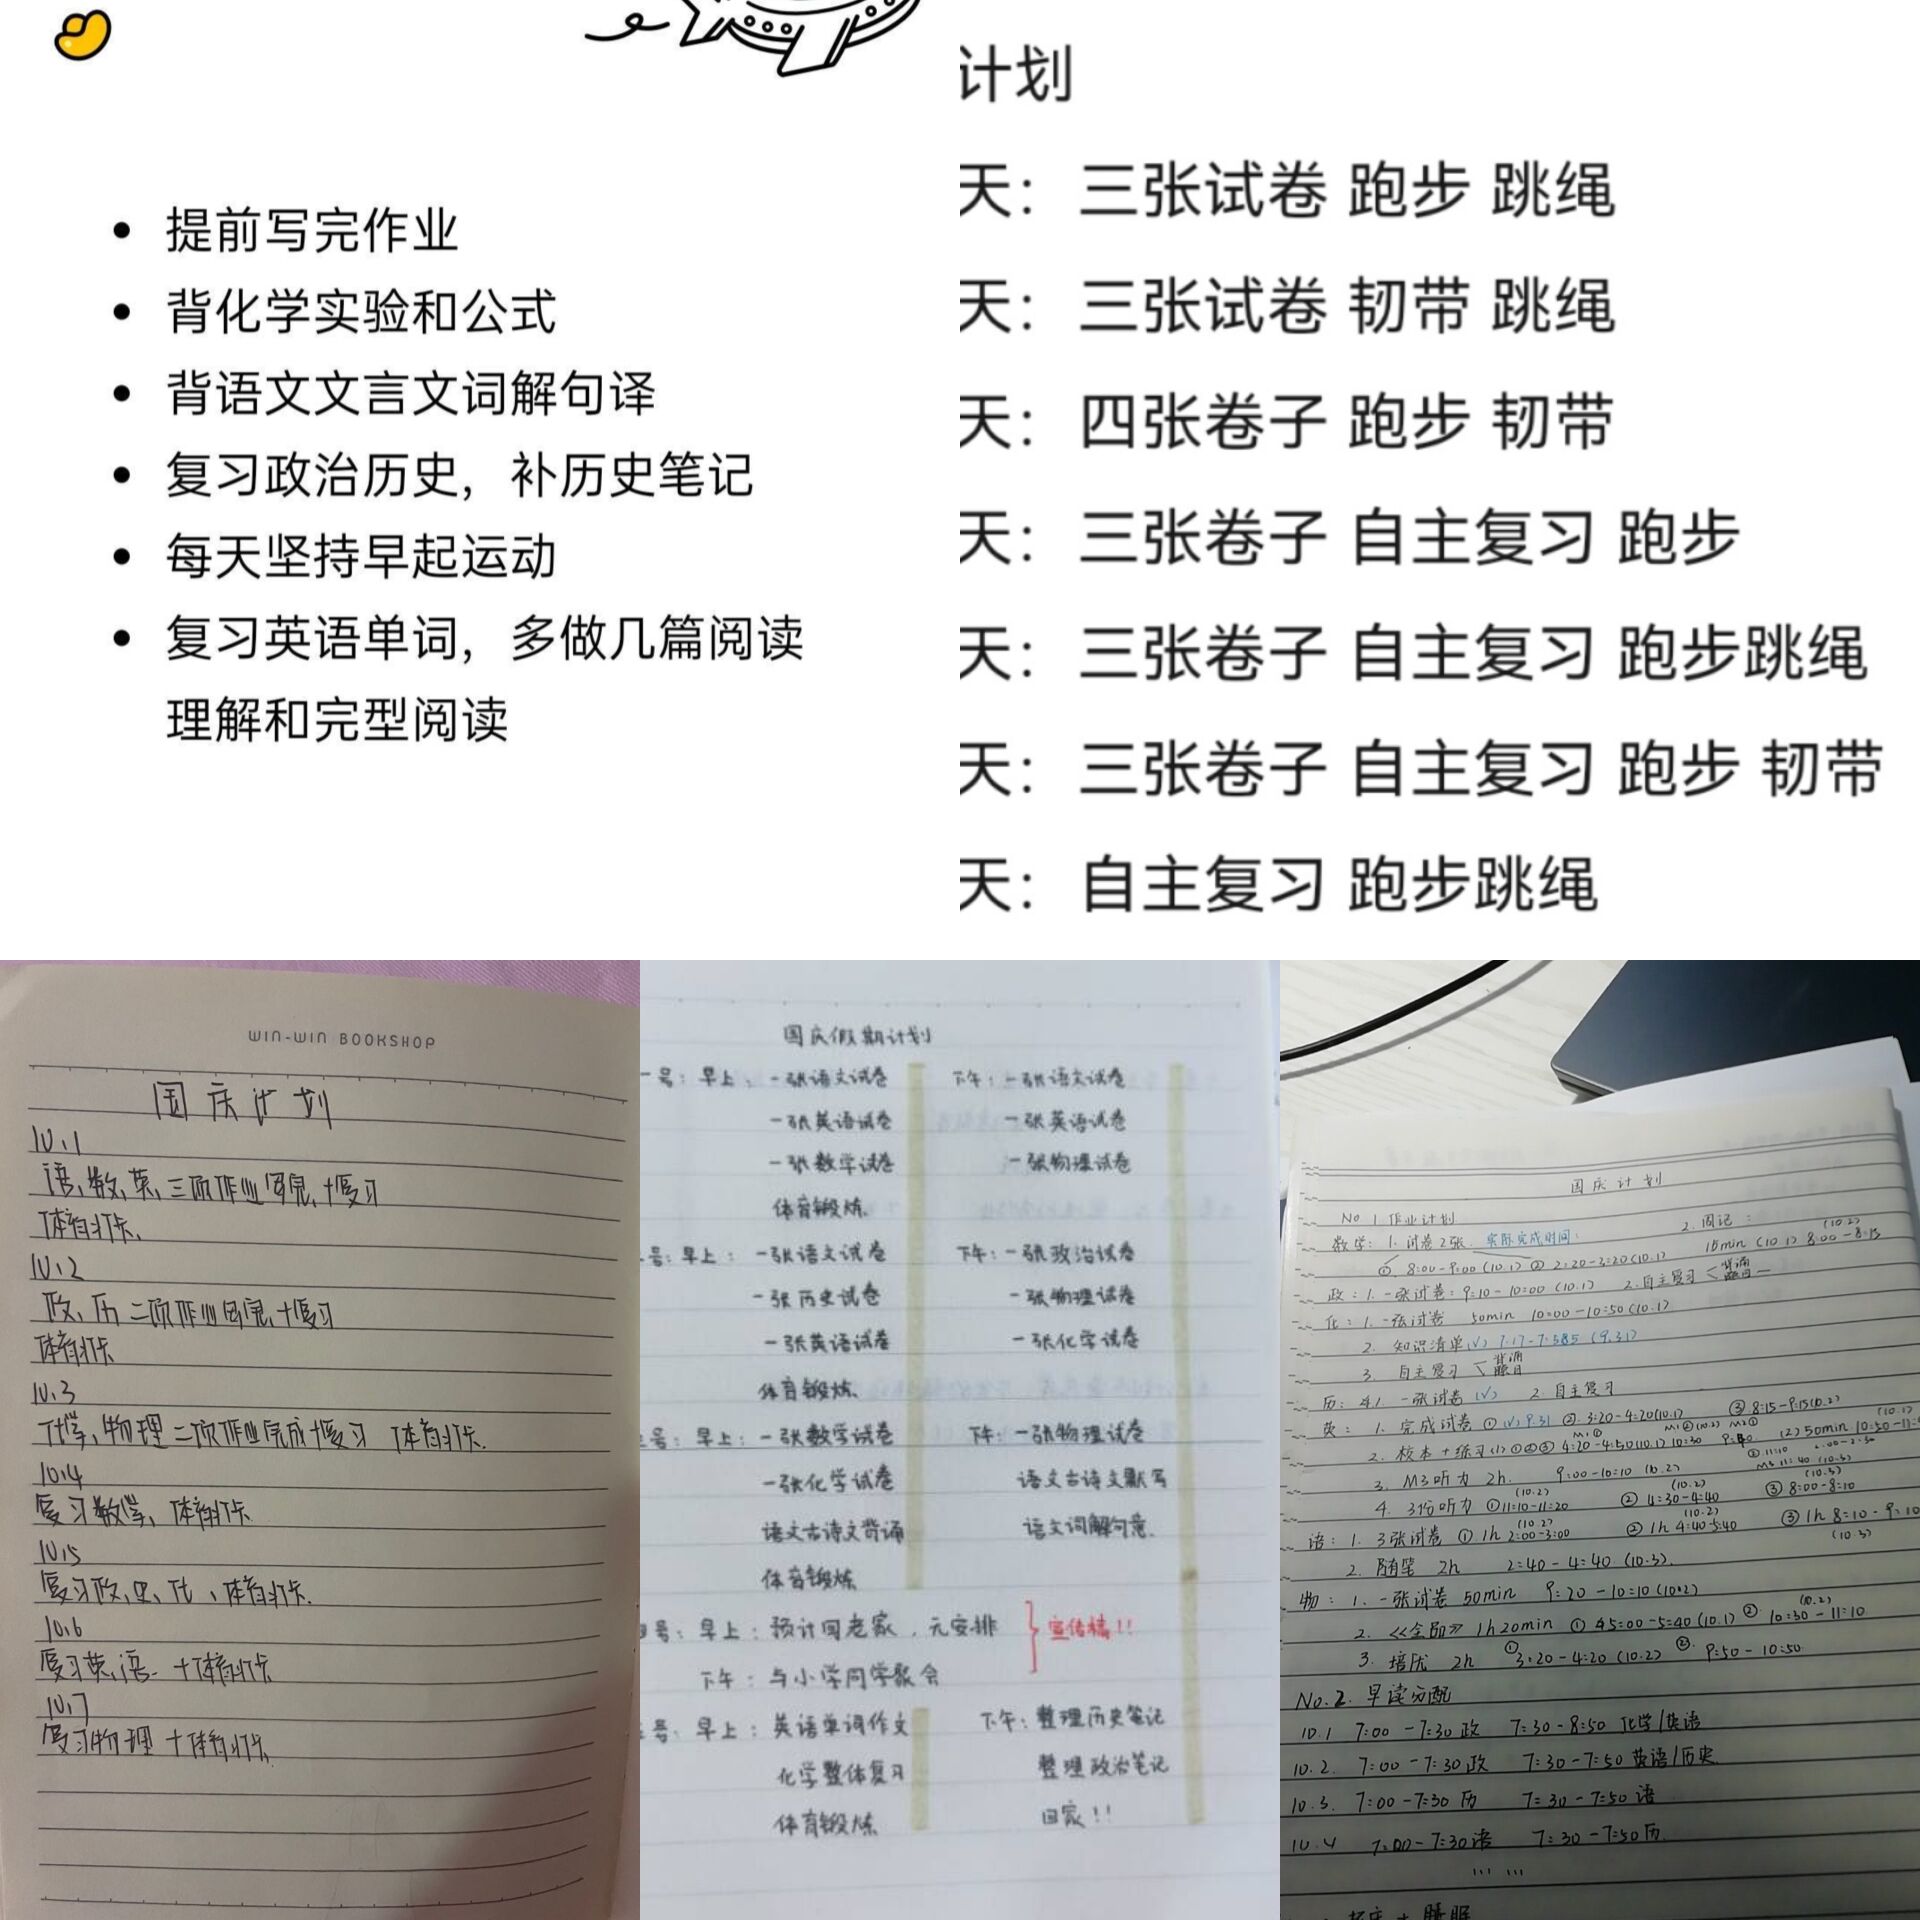 提前写完作业
背化学实验和公式
背语文文言文词解句译
复习政治历史，补历史笔记
每天坚持早起运动
复习英语单词，多做几篇阅读
理解和完型阅读
计划
天：三张试卷 跑步 跳绳
天：三张试卷 韧带 跳绳
天：四张卷子 跑步 韧带
天：三张卷子 自主复习 跑步
天：三张卷子 自主复习 跑步跳绳
天：三张卷子 自主复习 跑步 韧带
天：自主复习 跑步跳绳
WIN-WIN BOOKSHOP
国庆计划
10.1
语、数、英、三项作业写完,+复习
体育打卡.
10.2
政、历 二项作业写完,+复习
体育打卡
10.3
化学、物理 二项作业完成+复习 体育打卡.
10.4
复习数学、体育打卡
10.5
复习政、史、化、体育打卡.
10.6
复习英、语 +体育打卡
10.7
复习物理 +体育打卡.
国庆假期计划
一号：早上：一张语文试卷 下午：一张语文试卷
一张英语试卷 一张英语试卷
一张数学试卷 一张物理试卷
体育锻炼.
号：早上：一张语文试卷 下午：一张政治试卷
一张历史试卷 一张物理试卷
一张英语试卷 一张化学试卷
体育锻炼.
号：早上：一张数学试卷 下午：一张物理试卷
一张化学试卷 语文古诗文默写
语文古诗文背诵 语文词解句意.
体育锻炼
号：早上：预计回老家，无安排 宣传稿!!
下午：与小学同学聚会
号：早上：英语单词作文 下午：整理历史笔记
化学整体复习 整理政治笔记
体育锻炼 回家!!
国庆计划
No 1 作业计划
数学：1. 试卷2张. 实际完成时间： 2. 周记：
① 8:00-9:00 (10.1) ② 2:20-3:20 (10.1) 15min (10.1) 8:00-8:15 (10.2)
政：1. 一张试卷：9:10-10:00 (10.1) 2. 自主复习 < 背诵
化：1. 一张试卷 50min 10:00-10:50 (10.1)
2. 知识清单(√) 7:17-7:585 (9.31)
3. 自主复习 < 背诵 题目
历：1. 一张试卷 (√) 2. 自主复习
英：1. 完成试卷 ①(√) 9.31 ② 3:20-4:20 (10.1) ③ 8:15-9:15 (10.2)
2. 校本+练习 4:20-4:50 (10.1) 10:30 (2) 50min
3. M3听力 2h. 9:00-10:10 (10.2) M3 11:40 (10.3)
4. 3份听力 ① 11:10-11:20 (10.2) ② 4:30-4:40 (10.2) ③ 8:00-8:10 (10.3)
语：1. 3张试卷 ① 1h 2:00-3:00 (10.2) ② 1h 4:40-5:40 (10.2) ③ 1h 8:10-9:10 (10.3)
2. 随笔 2h 2:40-4:40 (10.3).
物：1. 一张试卷 50min 9:20-10:10 (10.2)
2. 《全品》 1h20min ① 5:00-5:40 (10.1) ② 10:30-11:10 (10.2)
3. 培优 2h ① 3:20-4:20 (10.2) ② 9:50-10:50
No.2. 早读分配
10.1 7:00-7:30 政 7:30-8:50 化学/英语
10.2. 7:00-7:30 政 7:30-7:50 英语/历史
10.3. 7:00-7:30 历 7:30-7:50 语
10.4 7:00-7:30 语 7:30-7:50 历.
... ...